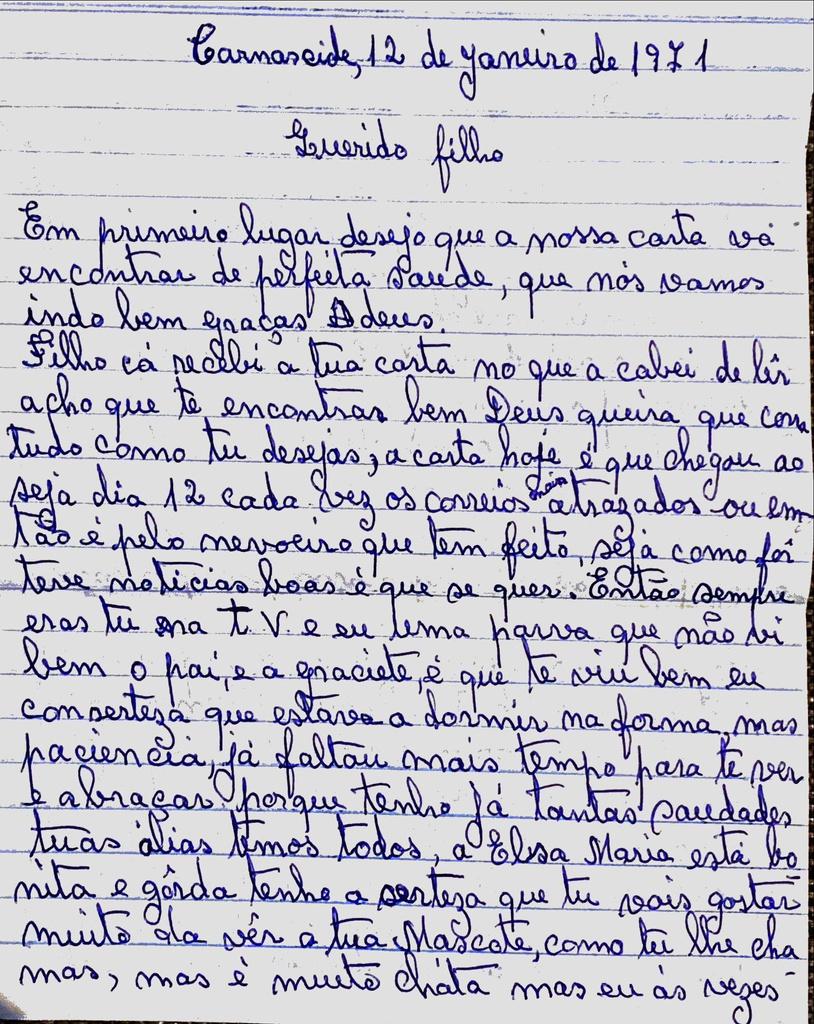 Carnaxide, 12 de Janeiro de 1971
Querido filho
Em primeiro lugar desejo que a nossa carta vá
encontrar de perfeita saude, que nós vamos
indo bem graças A deus.
Filho cá recebi a tua carta no que a cabei de lêr
acho que te encontras bem Deus queira que corra
tudo como tu desejas, a carta hoje é que chegou ao
seja dia 12 cada vez os correios mais atrazados ou em
tão é pelo nevoeiro que tem feito, seja como fôr
teve noticias boas é que se quer. Então sempre
eras tu na t.V. e eu uma parva que não vi
bem o pai, e a graciete, é que te viu bem eu
conserteza que estava a dormir na forma, mas
paciencia, já faltou mais tempo para te ver
e abraçar porque tenho já tantas saudades
tuas álias temos todos, a Elisa Maria está bo
nita e gôrda tenho a serteza que tu vais gostar
muito da vêr a tua Mascote, como tu lhe cha
mas, mas é muito cháta mas eu ás vezes